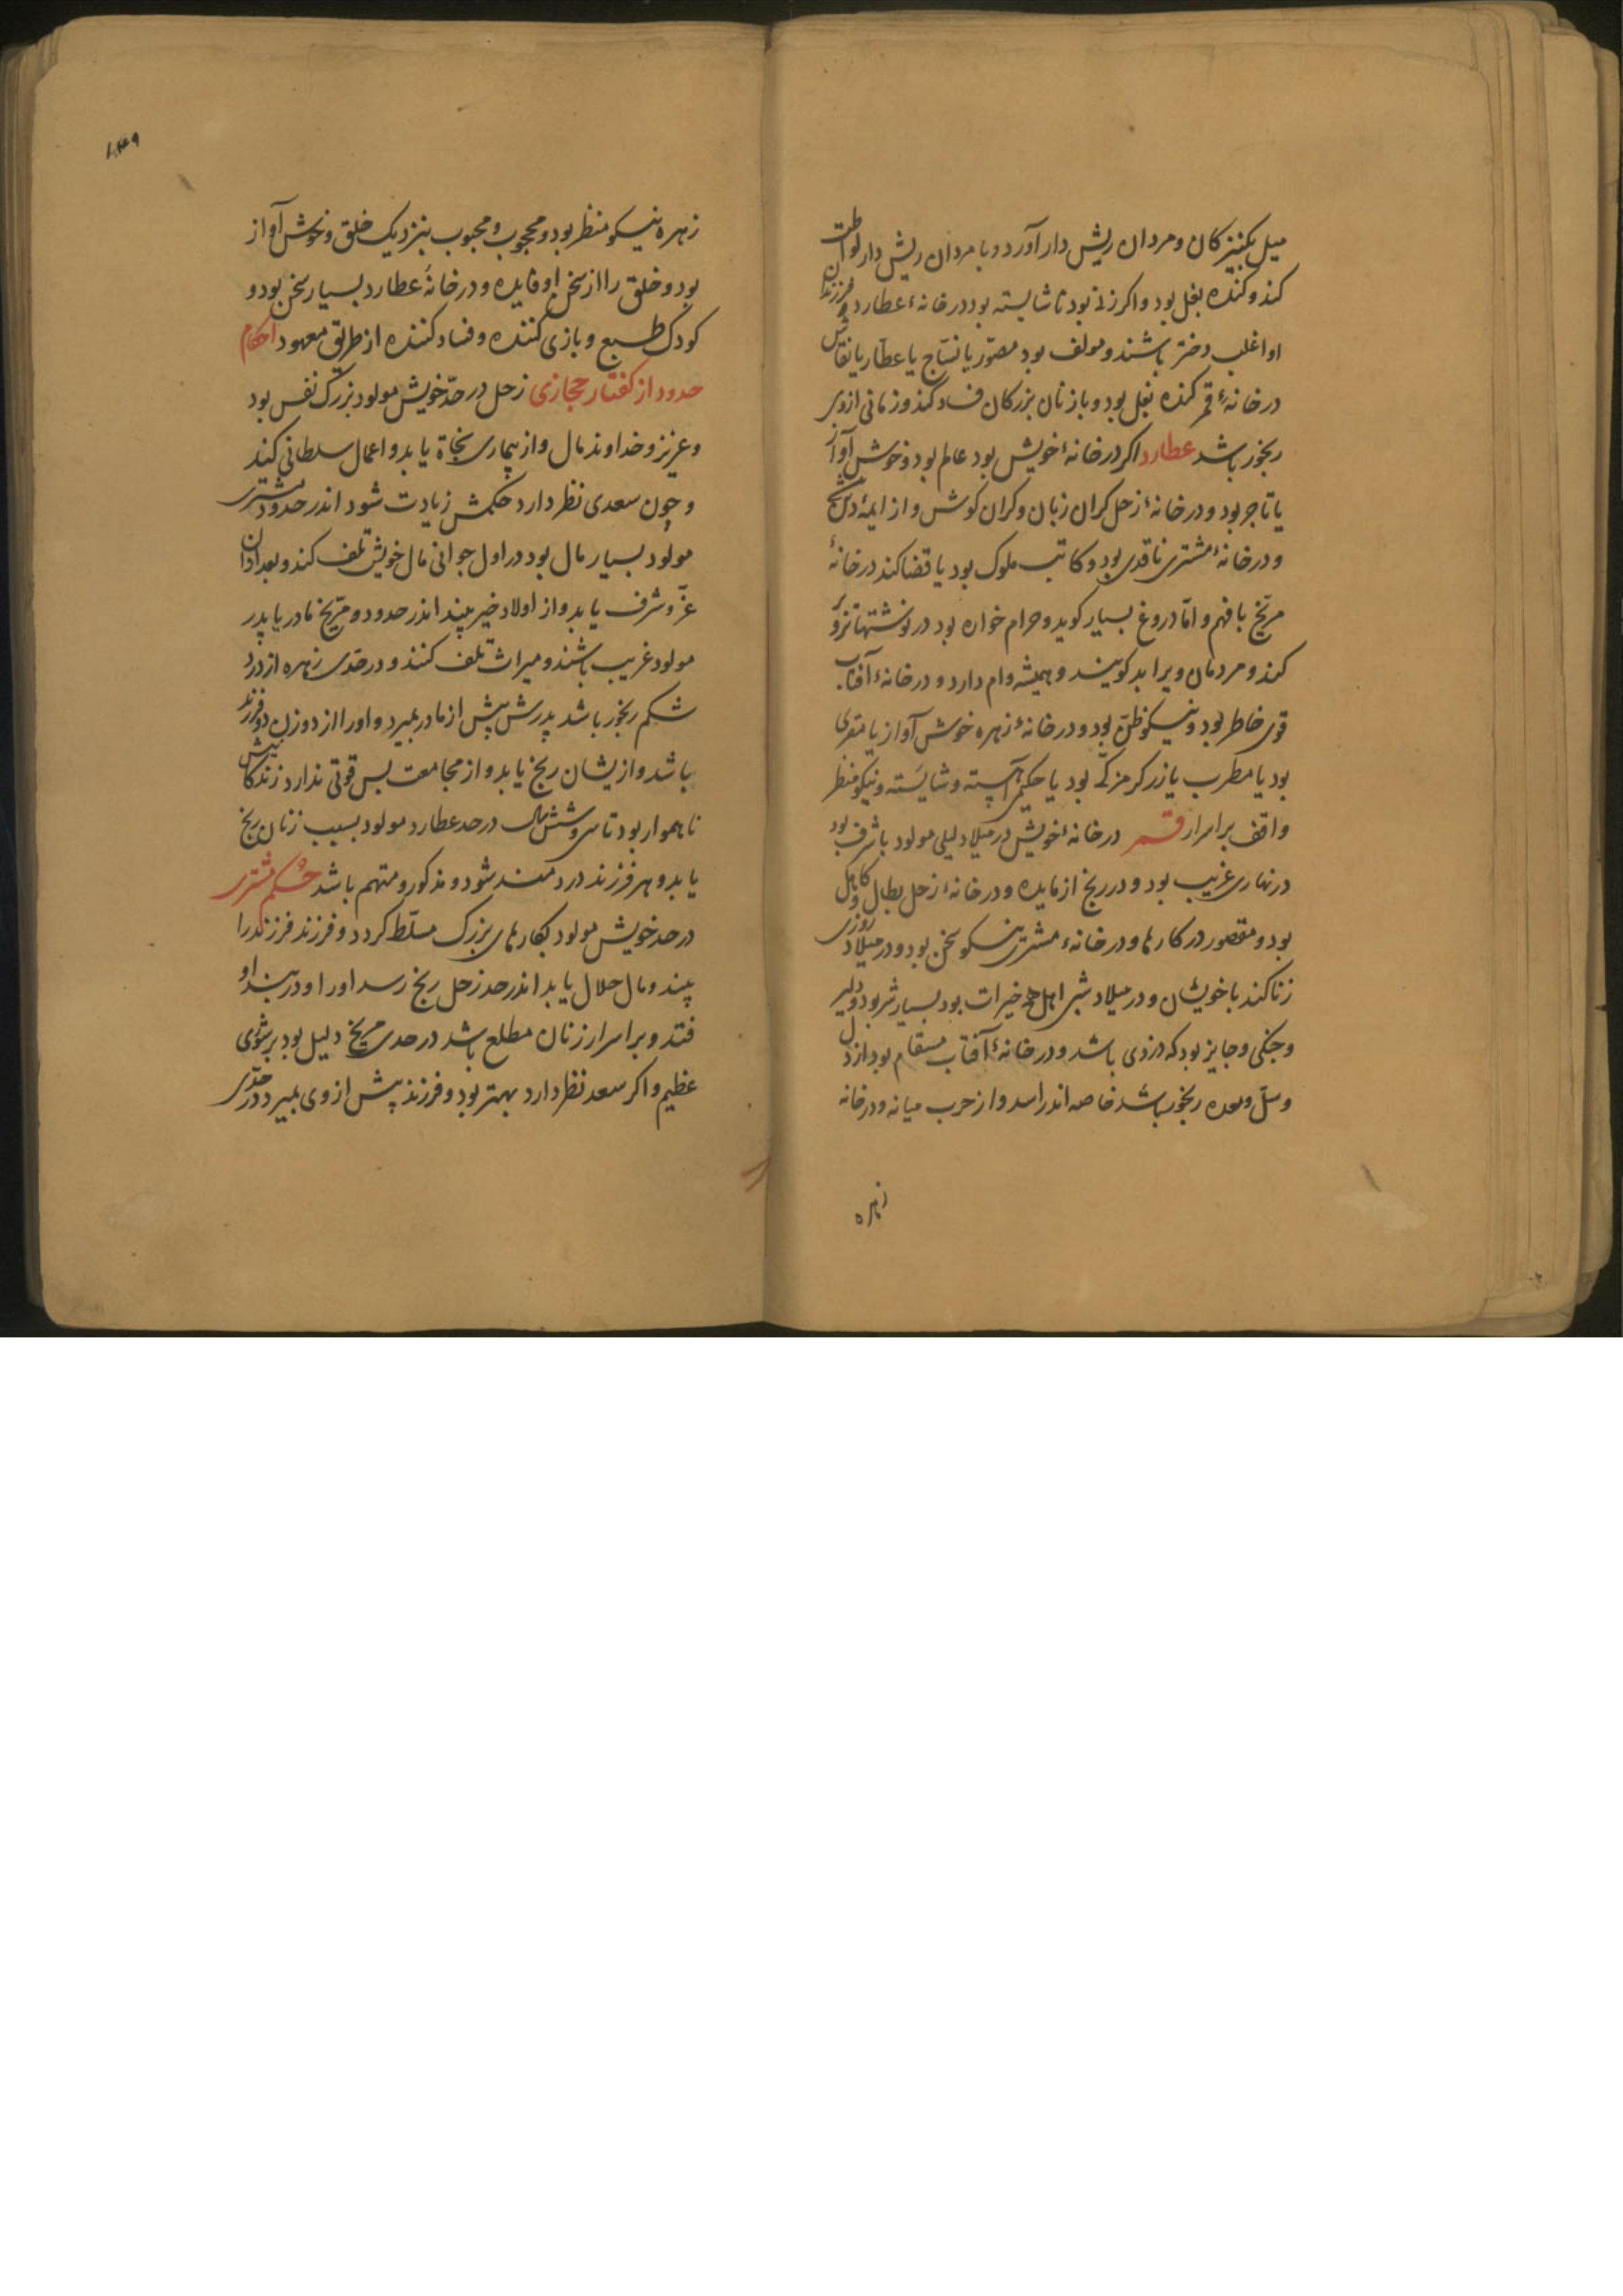 میل بکنیزکان و مردان ریش دار آورد و با مردان ریش دار لواطت
کند و کنده بغل بود و اکر زنی بود ناشایسته بود درخانهٔ عطارد و فرزندان
او اغلب دختر باشند و مولف بود مصوّر یا نسّاج یا عطّار یا نقّاش
درخانهٔ قمر کنده بغل بود و با زنان بزرکان فساد کند و زمانی از وی
رنجور باشد عطارد اکر درخانهٔ خویش بود عالم بود و خوش آواز
یا تاجر بود و درخانهٔ زحل کران زبان و کران کوش و از ایمهٔ دین
و درخانهٔ مشتری ناقدی بود و کاتب ملوک بود یا قضا کند درخانهٔ
مرّیخ با فهم و امّا دروغ بسیار کوید و حرام خواره بود در نوشتها تزویر
کند و مردمان ویرا بد کویند و همیشه وام دارد و درخانهٔ آفتاب
قوی خاطر بود و نیکو ظنّ بود و درخانهٔ زهره خوش آواز یا مقری
بود یا مطرب یا زرکر مزکّی بود یا حکیم آهسته و شایسته و نیکو منظر
واقف بر اسرار قمر درخانهٔ خویش در میلاد لیلی مولود با شرف بود
در نهاری غریب بود و در رنج از مایده و درخانهٔ زحل بطّال و کاهل
بود و مقصور در کارها و درخانهٔ مشتری نیسکو سخن بود و در میلاد روزی
زنا کند با خویشان و در میلاد شبی اهل همه خیرات بود بسیار شر بود و دلیر
و جنکی و جایز بود که دزدی باشد و درخانهٔ آفتاب مسقام بود از دل
و سلّ و معده رنجور باشد خاصه اندر اسد و از حرب میانه و درخانه
زهره
۱۴۹
زهره نیسکو منظر بود و محجوب و محبوب بنزدیک خلق و خوش آواز
بود و خلق را از سخن او فایده و درخانهٔ عطارد بسیار سخن بود و
کودک طبع و بازی کننده و فساد کننده از طریق معهود احکام
حدود از کفتار حجازی زحل در حدّ خویش مولود بزرک نفس بود
و عزیز و خداوند مال و از بیماری نجاة یابد و اعمال سلطانی کند
و چون سعدی نظر دارد حکمش زیادت شود اندر حدود مشتری
مولود بسیار مال بود در اول جوانی مال خویش تلف کند و بعد از ان
عزّ و شرف یابد و از اولاد خیر بیند اندر حدود مرّیخ مادر یا پدر
مولود غریب باشند و میراث تلف کنند و در حدّی زهره از درد
شکم رنجور باشد پدرش پیش از مادر بمیرد و او را از دو زن دو فرزند
باشد و از یشان رنج یابد و از مجامعت بس قوتی ندارد زندکانیش
ناهموار بود تا سی و شش سال در حد عطارد مولود بسبب زنان رنج
یابد و بهر فرزند دردمند شود و مذکور و متهم باشد حکم مشتری
در حد خویش مولود بکارهای بزرک مسلّط کردد و فرزند فرزند را
بیند و مال حلال یابد اندر حد زحل رنج رسد او را و در بند او
فتد و بر اسرار زنان مطلع باشد در حدی مریخ دلیل بود بر شوی
عظیم و اکر سعد نظر دارد بهتر بود و فرزند پیش از وی بمیرد در حدّی